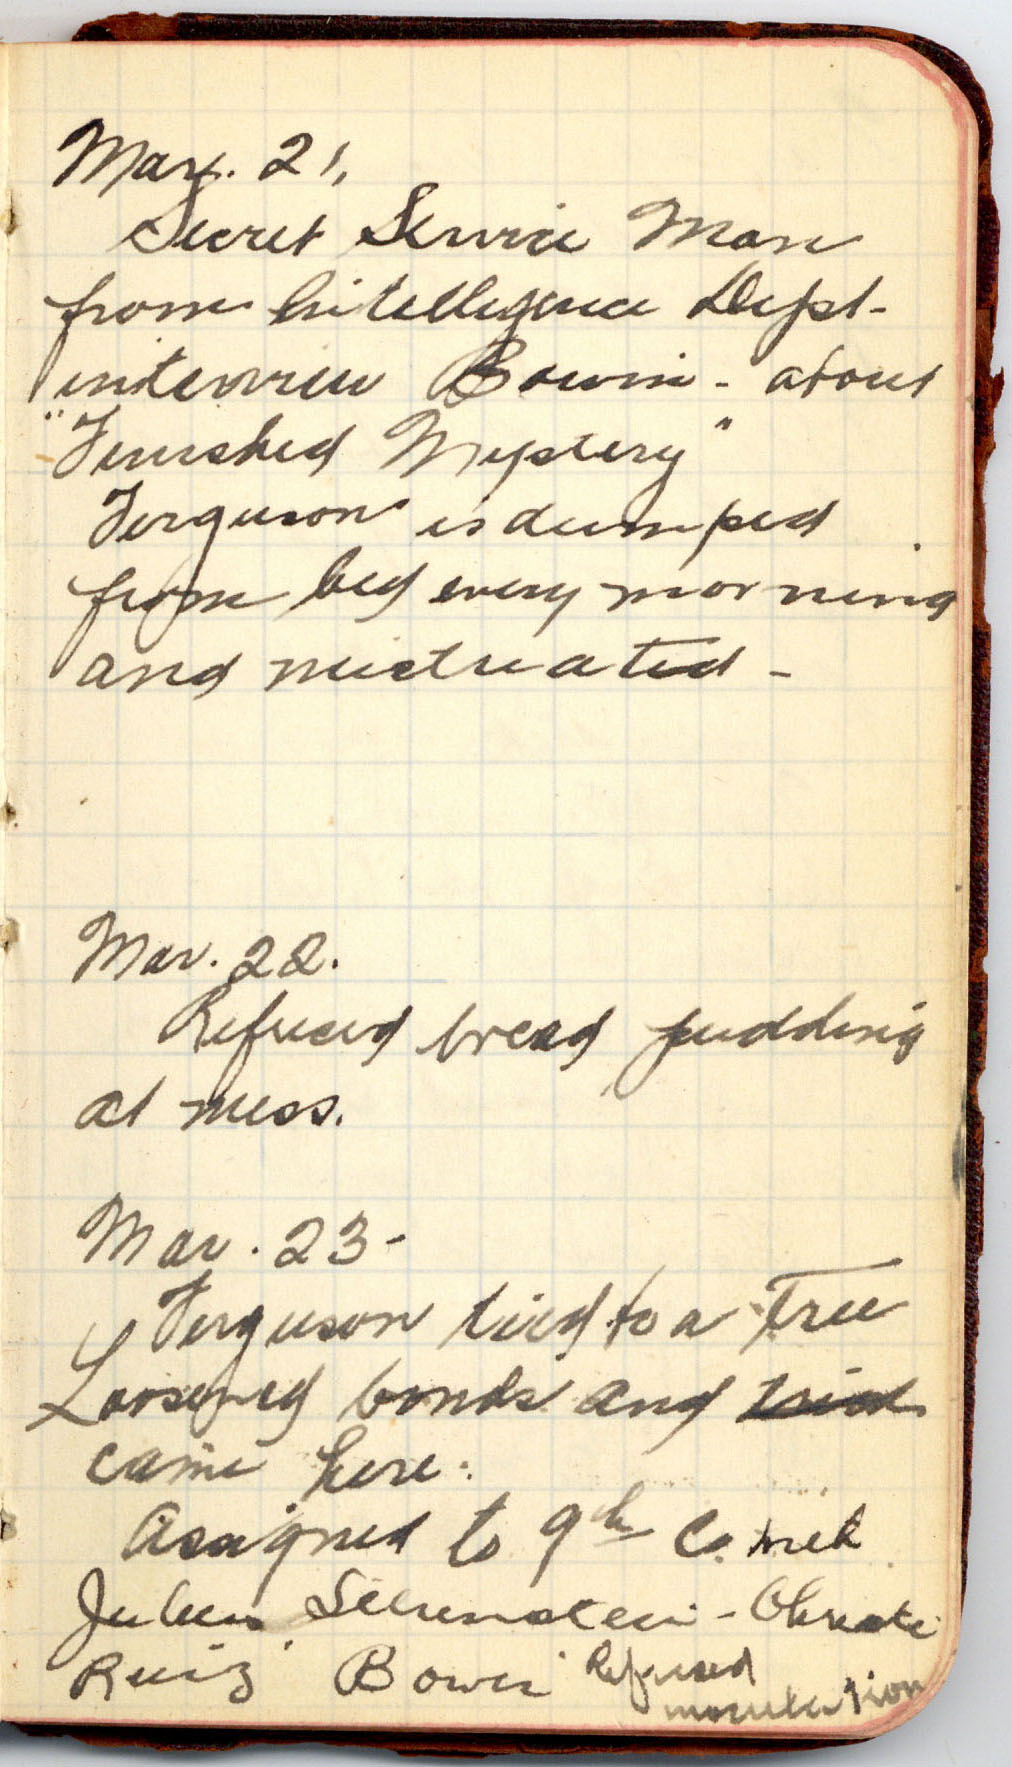 Mar. 21,
Secret Service Man
from Intelligence Dept-
interview Bowin - about
"Finished Mystery"
Ferguson is dumped
from bed every morning
and mistreated -
Mar. 22.
Refused bread pudding
at mess.
Mar. 23-
Ferguson tied to a Tree
Loosened bonds and
came here.
Assigned to 9th Co. with
Julius
Ruiz Bowin Refused
inoculation